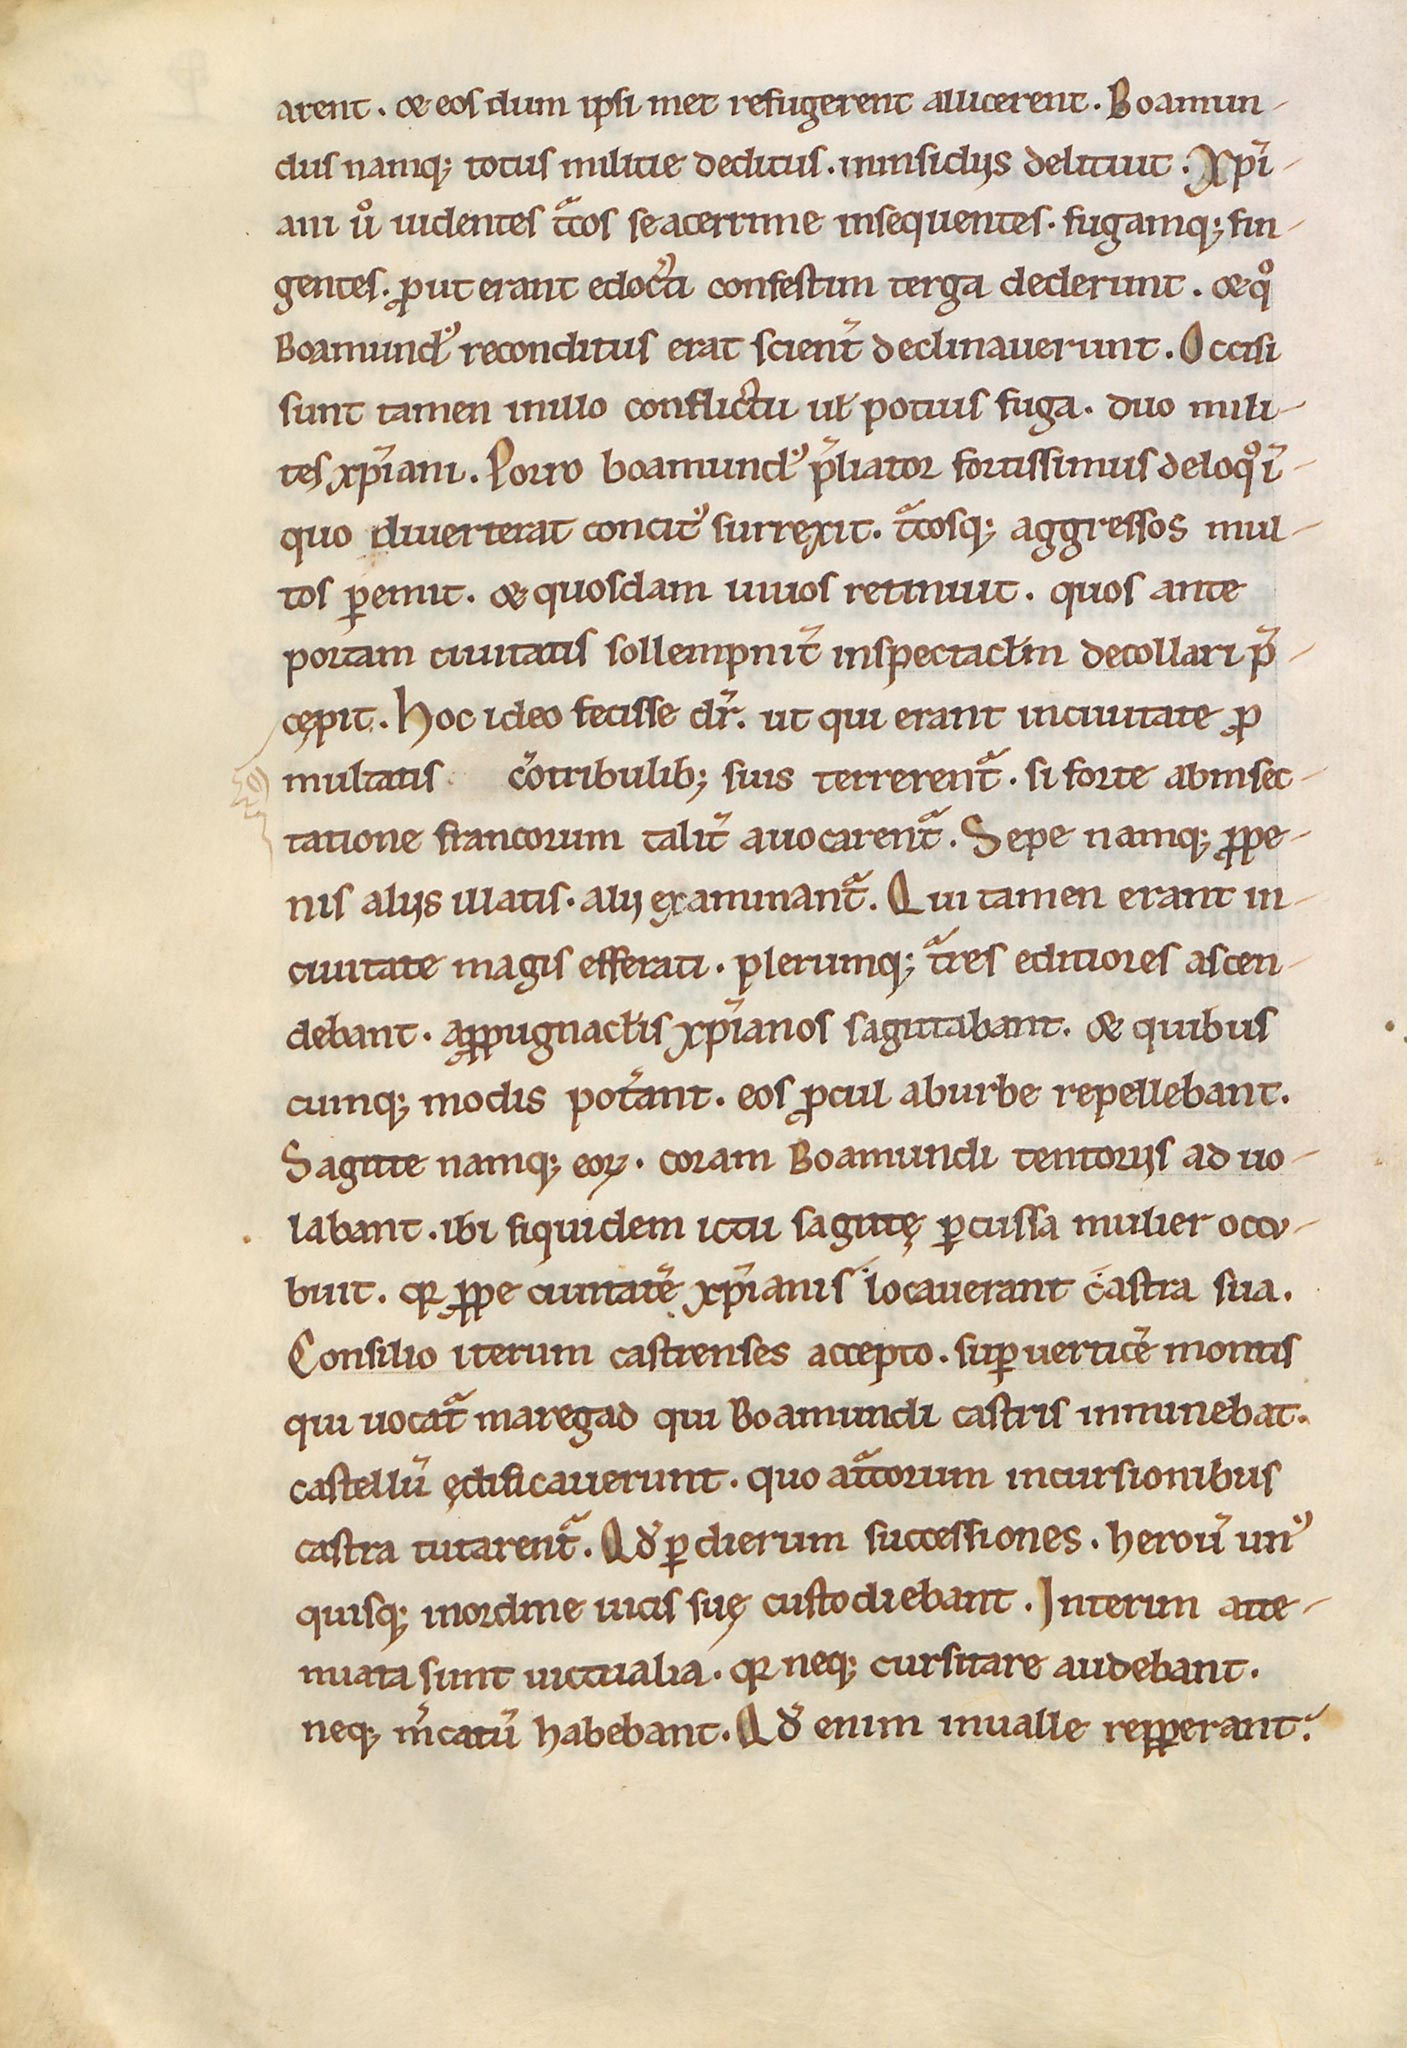 arent . & eos dum ipsi met refugerent allicerent . Boamun-
dus namq; totus militie deditus . in insidiis delituit . Xp̄i-
ani ů uidentes t̄cos se acerrime insequentes . fugamq; fin-
gentes . ꝓut erant edocti confestim terga dederunt . & qͦ
Boamundꝰ reconditus erat scient̄ declinauerunt . Occisi
sunt tamen in illo conflictu uł potius fuga . duo mili-
tes xp̄iani . Porro boamundꝰ p̄liator fortissimus de loqͦ ī-
quo diuerterat concitꝰ surrexit . t̄cosq; aggressos mul-
tos ꝑemit . & quosdam uiuos retinuit . quos ante
portam ciuitatis sollempnit̄ in spectactm decollari p̄-
cępit . Hoc ideo fecisse dr̄ . ut qui erant in ciuitate ꝓ
multatis c̄otribulib; suis terrerent᷑ . si forte ab insec-
tatione francorum talit̄ auocarent᷑ . Sepe namq; ꝓpe-
nis aliis illatis . alii examinant᷑ . Qui tamen erant in-
ciuitate magis efferati . plerumq; t̄res editiores ascen-
debant . a ꝓpugnaclis xp̄ianos sagittabant . & quibus
cumq; modis pot̄ant . eos ꝓcul ab urbe repellebant .
Sagitte namq; eoꝝ . coram Boamundi tentoriis ad uo-
labant . ibi siquidem ictu sagittę ꝑcussa mulier occu-
buit . qꝛ ꝓpe ciuitatē xp̄ianis locauerant castra sua .
Consilio iterum castrenses accepto . suꝑ uerticē montis
qui uocat᷑ maregad qui Boamundi castris imminebat .
castellū ędificauerunt . quo at̄corum incursionibus
castra tutarent᷑ . Qđ ꝑ dierum successiones . heroū unꝰ
quisq; in ordine uicis suę custodiebant . Interim atte-
nuata sunt uictualia . qꝛ neq; cursitare audebant .
neq; m̄catū habebant . Qđ enim in ualle repꝑerant .